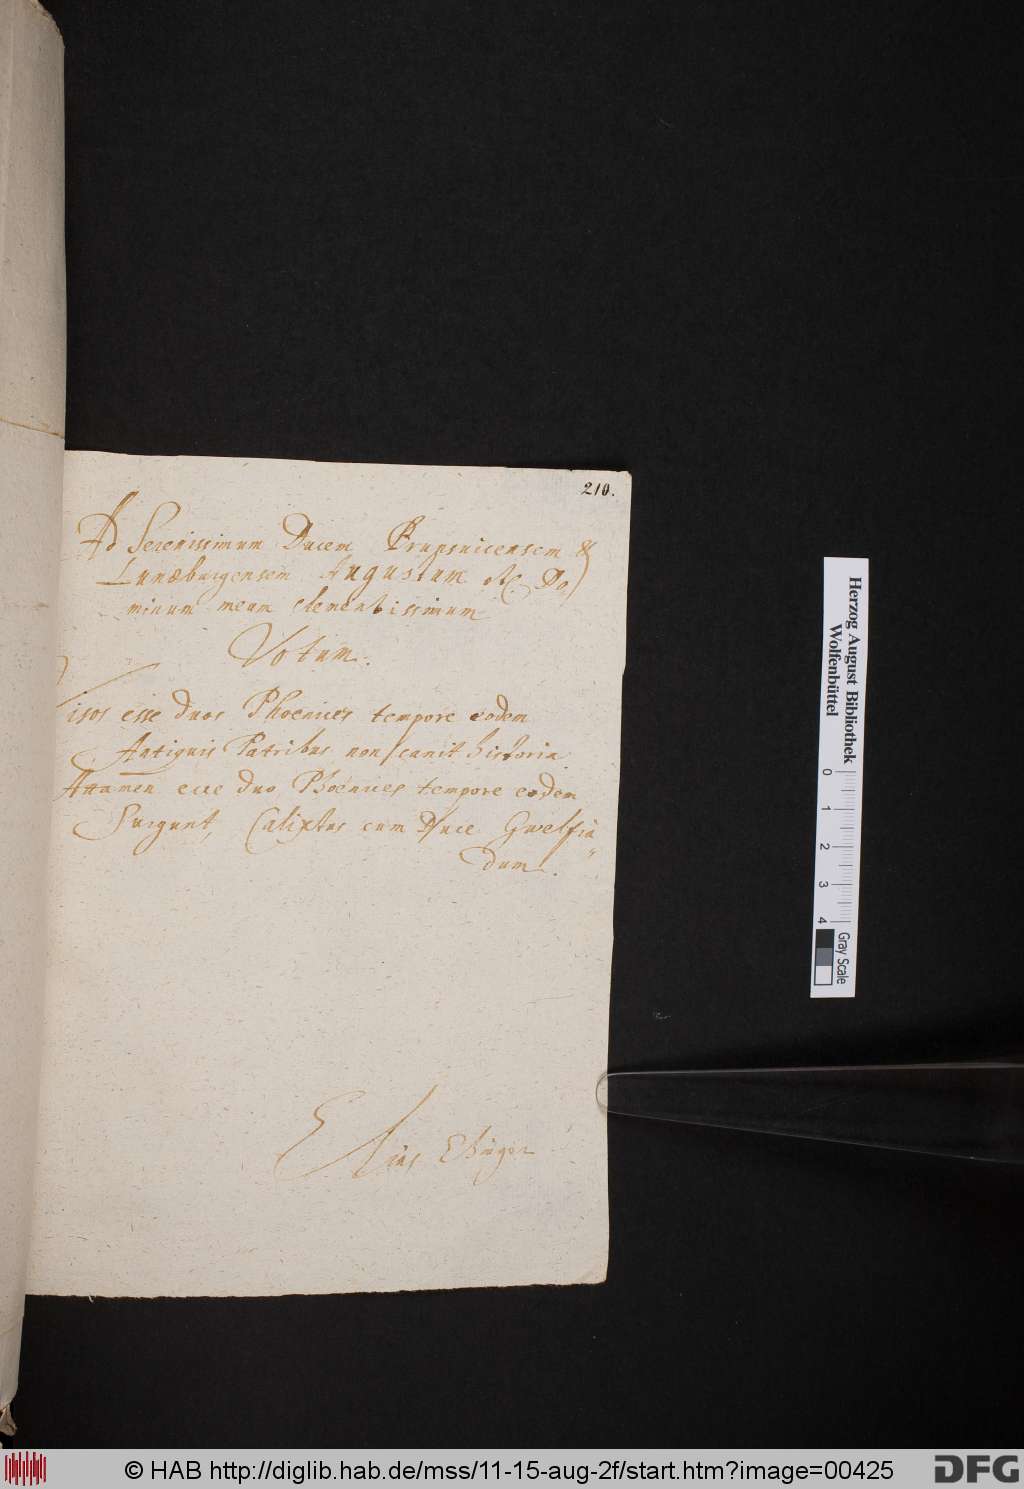 210.
Ad Serenissimum Ducem Brunsuicensem &
Lunæburgensem Augustum &c. Do
minum meum clementissimum
Votum.
Visos esse duos Phoenices tempore eodem
Antiquis Patribus non canit historia
Attamen ecce duo Phoenices tempore eodem
Surgunt, Calixtus cum Duce Gwelfia
dum.
Elias
Herzog August Bibliothek
Wolfenbüttel
0 1 2 3 4
Gray Scale
© HAB http://diglib.hab.de/mss/11-15-aug-2f/start.htm?image=00425
DFG